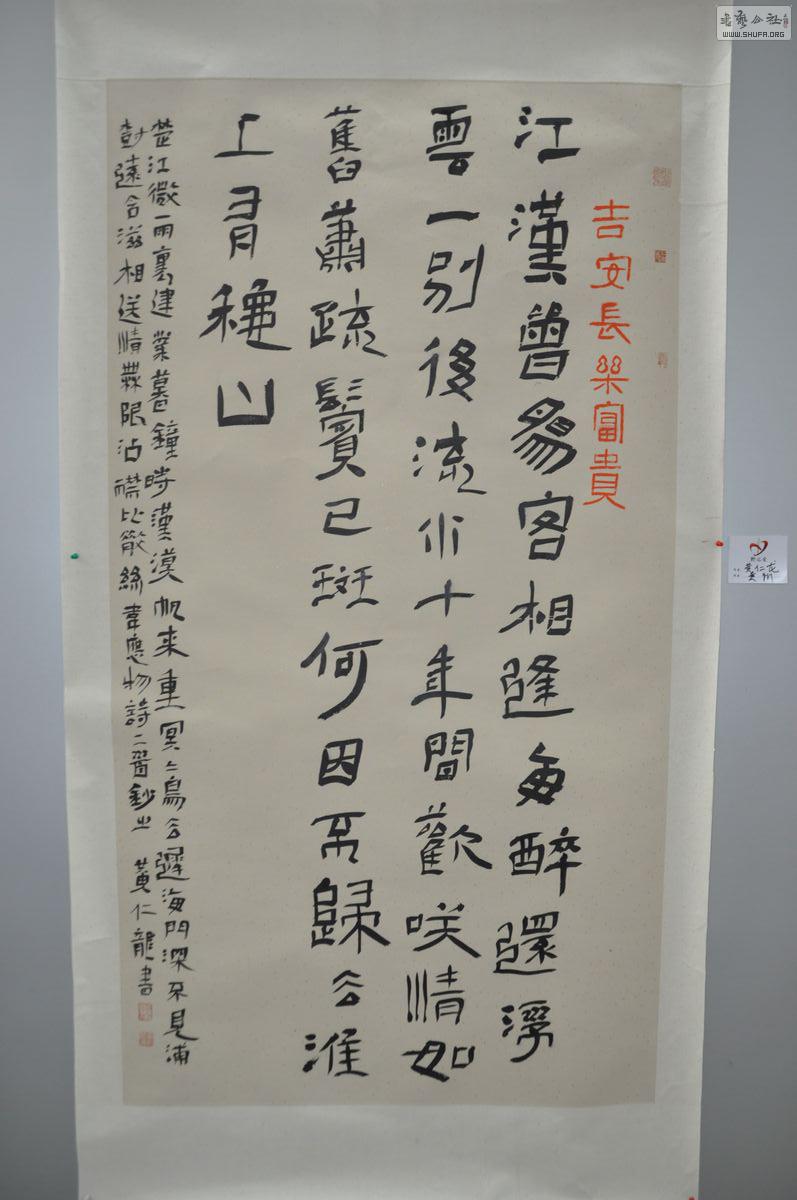 書藝公社
WWW.SHUFA.ORG
吉安長樂富貴
江漢曾爲客相逢每醉還浮
雲一別後流水十年間歡咲情如
舊蕭疏鬢已斑何因不歸去淮
上有穐山
楚江微雨裏建業暮鐘時漠漠帆來重冥〻鳥去遲海門深不見浦
樹遠含滋相送情無限沾襟比散絲韋應物詩二首鈔之 黃仁龍書
黄仁龙